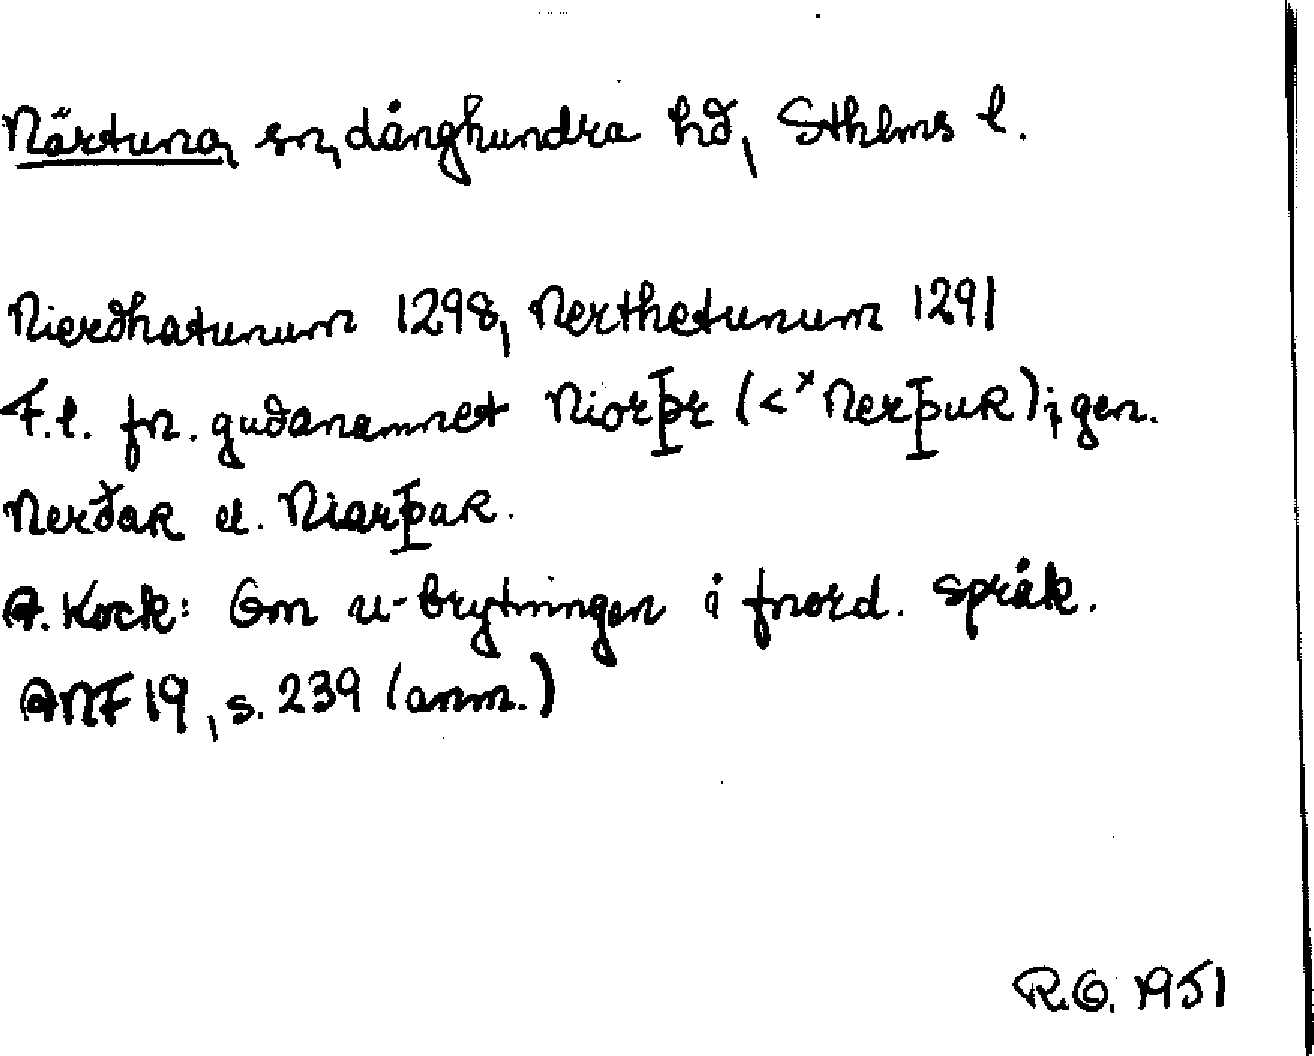 Närtuna, sn, Långhundra hd, Sthlms l.
Nierdhatunum 1298, Nerthetunum 1291
F.l. fn. gudanamnet Niorþr (<*NerþuR); gen.
NerðaR el. NiarþaR.
A. Kock: Om u-brytningen i fnord. språk.
ANF 19, s. 239 (anm.)
R.O. 1951